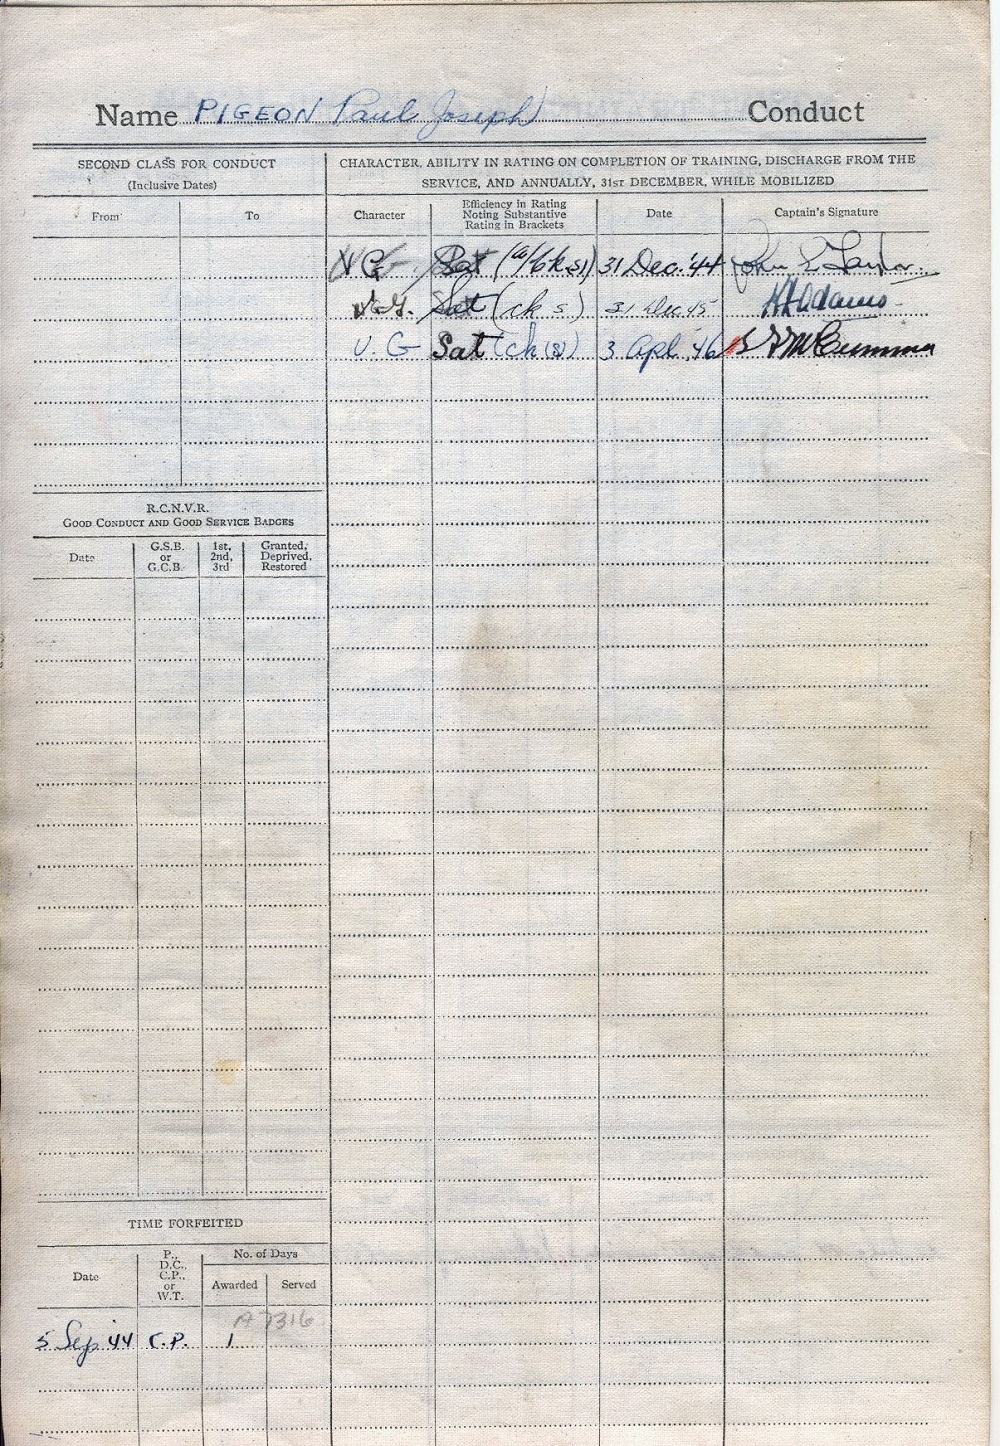 Name PIGEON Paul Joseph Conduct
SECOND CLASS FOR CONDUCT
(Inclusive Dates)
From To
CHARACTER, ABILITY IN RATING ON COMPLETION OF TRAINING, DISCHARGE FROM THE
SERVICE, AND ANNUALLY, 31ST DECEMBER, WHILE MOBILIZED
Character
Efficiency in Rating
Noting Substantive
Rating in Brackets
Date
Captain's Signature
V G. Sat 31 Dec. '44 John L Taylor.
V.G. Sat (ck s) 31 Dec 45 Adams
V. G Sat (ck (s)) 3 Apl. 46
R.C.N.V.R.
GOOD CONDUCT AND GOOD SERVICE BADGES
Date
G.S.B.
or
G.C.B.
1st,
2nd,
3rd
Granted,
Deprived,
Restored
TIME FORFEITED
Date
P.,
D.C.,
C.P.,
or
W.T.
No. of Days
Awarded Served
A7316
5 Sep '44 C.P. 1